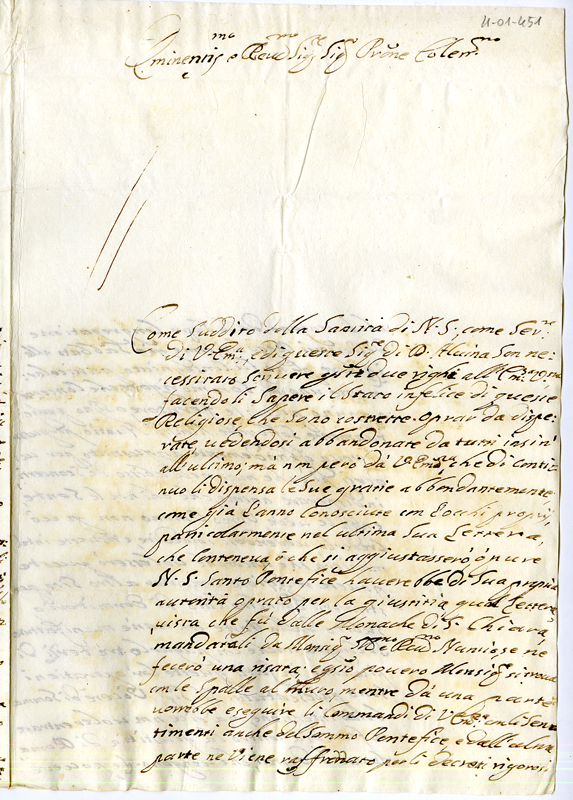 4-01-451
Eminentis.mo e Reu.mo Sig.re Sig.r Prōne Colen.mo
Come Suddito della Santità di N. S. come Ser.re
di V. Em.a, e di queste Sig.re di D. Son ne-
cessitato Scriuere due righe all' Em.a V.ra
facendoli Sapere il Stato infelice di queste
Religiose, che Sono costrette oprar da dispe-
rate, uedendosi abbandonate da tutti insin'
all'ultimo; mà nm però dà V. Em.a, che di conti-
nuo li dispensa le Sue gratie abbondantemente
come già l'anno Conosciute con l'occhi proprij,
particolarmente nel ultima Sua Lettera,
che conteneua ò che si aggiustassero ò pure
N. S. Santo Pontefice hauerebbe di Sua propria
autorità oprato per la giustitia qual Lettera
uista che fù dalle Monache di S. Chiara
mandatali da Monsig.r Ill.mo e Reu.mo Nuncio se ne
fecero una risata: pouero Monsig.r si troua
con le Spalle al muro mentre da una parte
uorrebe eseguire li Commandi di V. Em.a con li Sen-
timenti anche del Sommo Pontefice, e dall' altra
parte ne Viene raffredato per li Decreti rigorosi